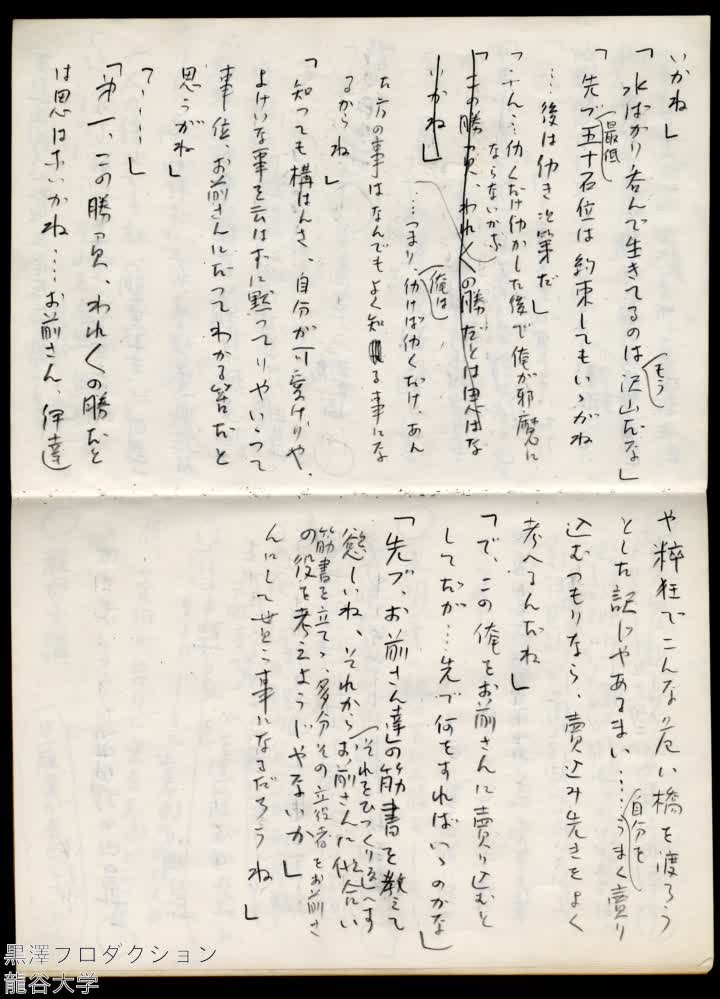 いかね」
「水ばかり呑んで生きてるのは沢山だな」
もう
「先づ五十石位は約束してもいゝがね
最低
…後は仂き次第だ」
「ふん…仂くだけ仂かした後で俺が邪魔に
ならないかな
「この勝負、われ〳〵の勝だとは思はな
いかね」
…つまり、仂けば仂くだけ、あん
俺は
た方の事はなんでもよく知る事にな
るからね」
「知っても構はんさ、自分が可愛けりや、
よけいな事を云はずに黙ってりやいゝって
事位、お前さんにだってわかる筈だと
思うがね」
「……」
「第一、この勝負、われ〳〵の勝だと
は思はないかね……お前さん、伊達
や粋狂でこんな危い橋を渡ろう
とした訳じやあるまい……うまく売り
自分を
込むつもりなら、売込み先きをよく
考へるんだね」
「で、この俺をお前さんに売り込むと
してだが…先づ何をすればいゝのかな」
「先づ、お前さん達の筋書を教えて
慾しいね、それからお前さんに似合い
それをひつくり返へす
筋書を立てゝ、多分その立役者をお前さ
の役を考えようじやないか」
んにして貰ふ事になるだろうね」
黒澤プロダクション
龍谷大学